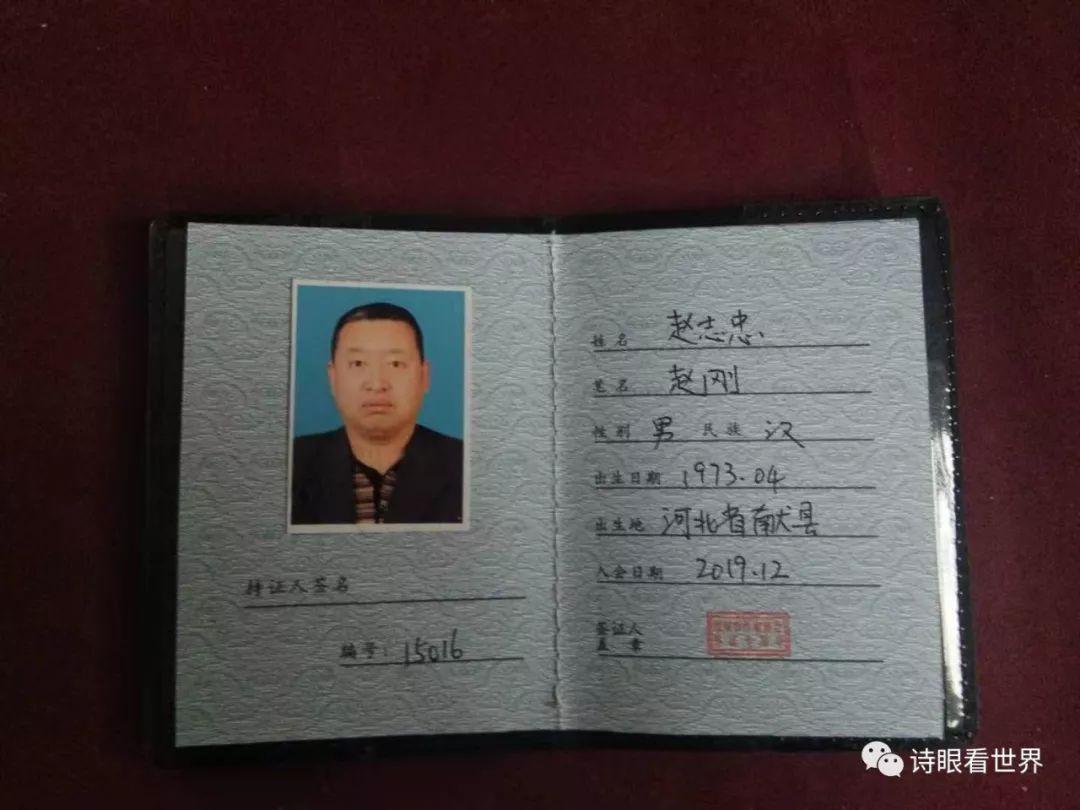 持证人签名
编号：15016
姓名 赵志忠
笔名 赵刚
性别 男 民族 汉
出生日期 1973.04
出生地 河北省献县
入会日期 2019.12
签证人
盖章
诗眼看世界